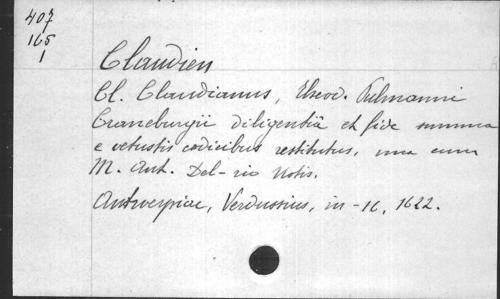 407
165
1
Claudien
Cl. Claudianus, Theod. Pulmanni
Craneburgii diligentiâ et fide summa
e vetustis codicibus restitutus, una cum
M. Ant. Del-rio notis.
Antwerpiae, Verdussius, in-16, 1622.